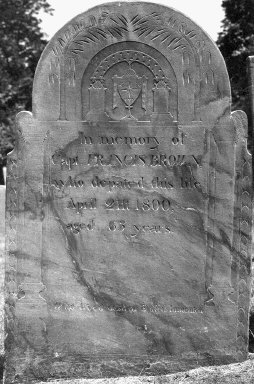 In memory of
Capt. FRANCIS BROWN
who departed this life
April 21st 1800,
aged 63 years.